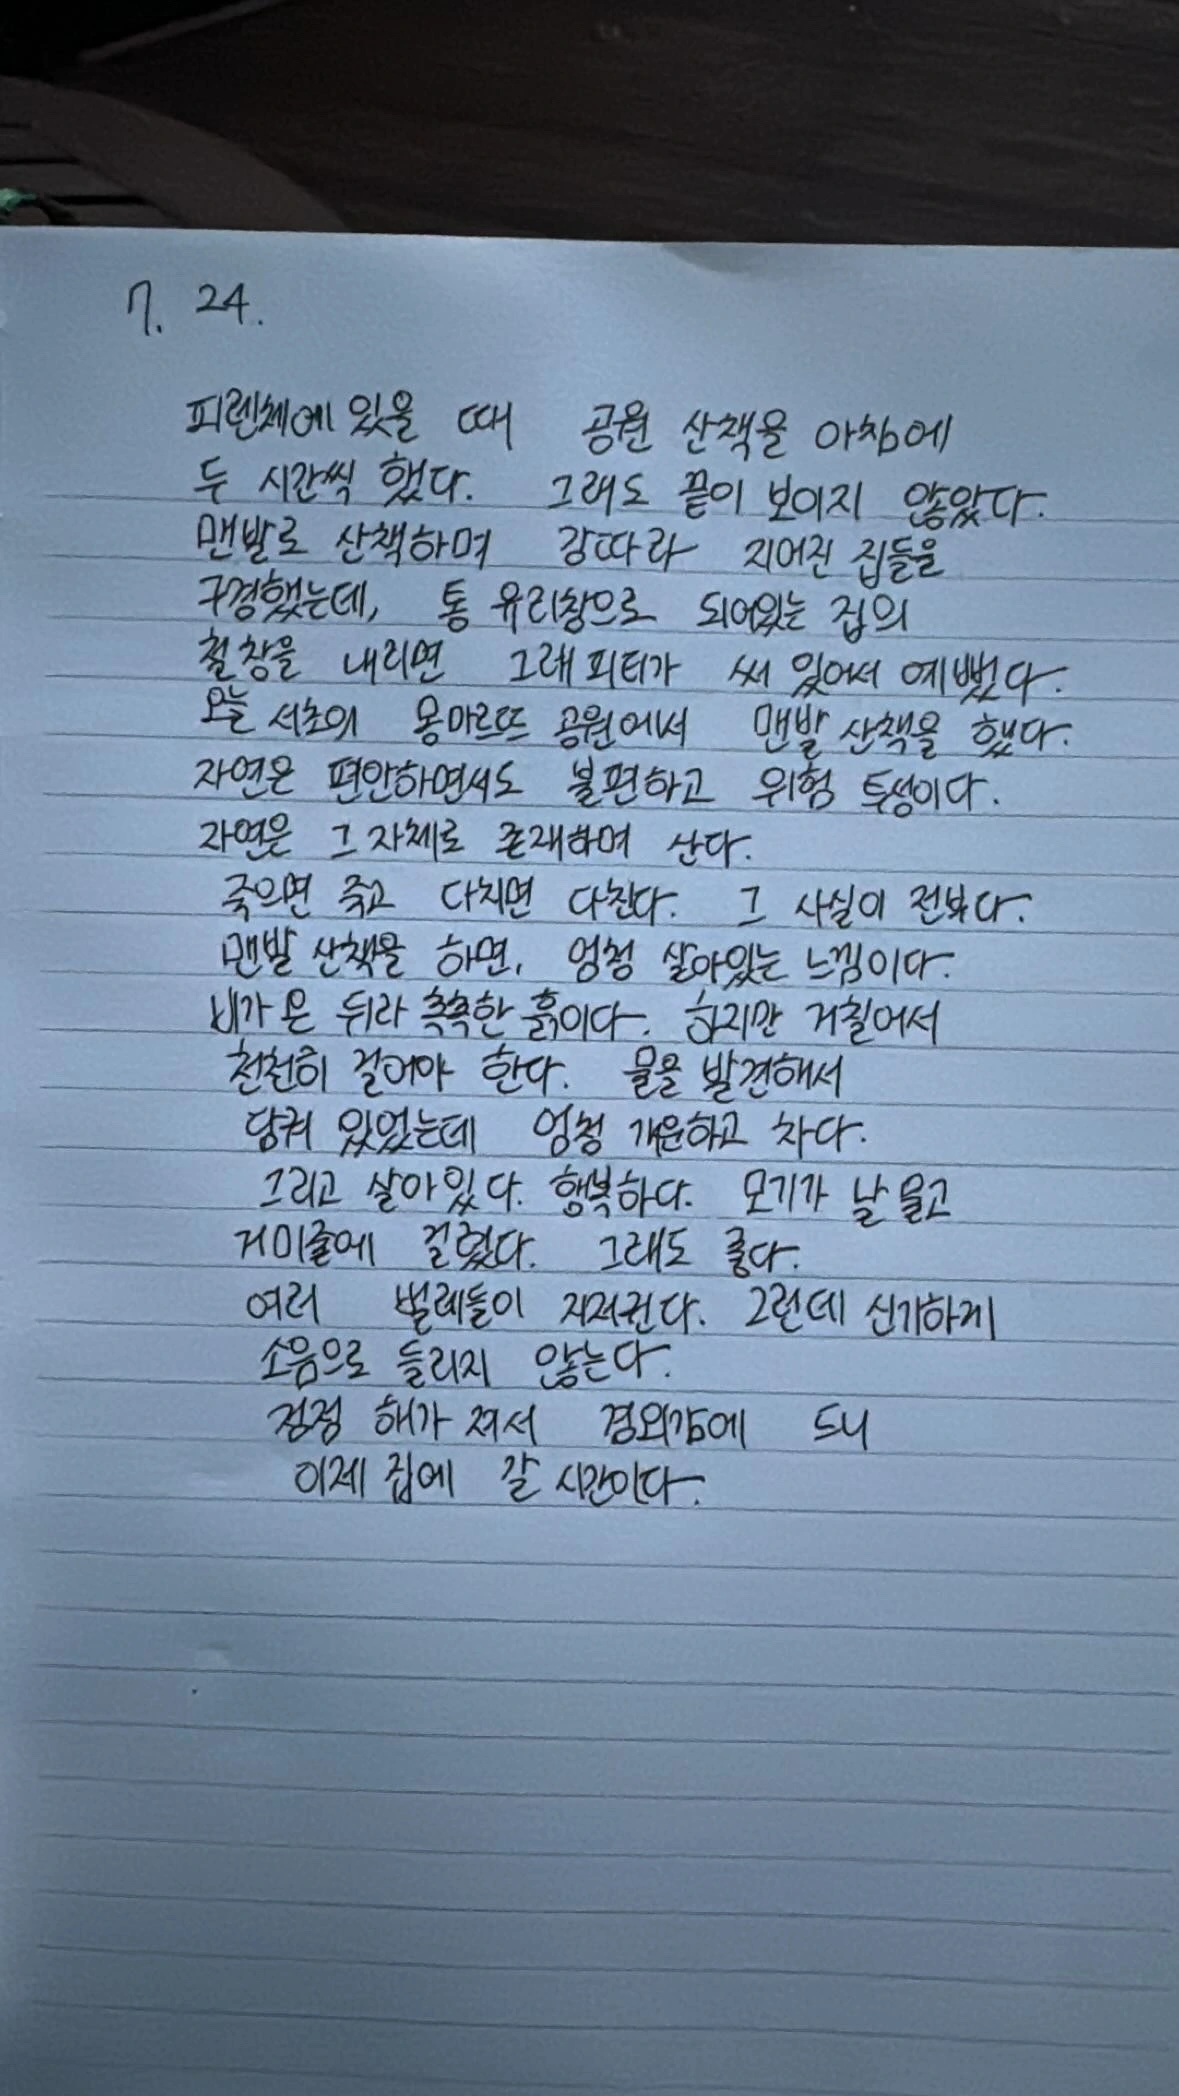 7. 24.
피렌체에 있을 때 공원 산책을 아침에
두 시간씩 했다. 그래도 끝이 보이지 않았다.
맨발로 산책하며 강따라 지어진 집들을
구경했는데, 통 유리창으로 되어있는 집의
철창을 내리면 그래피티가 써 있어서 예뻤다.
오늘 서초의 몽마르뜨 공원에서 맨발 산책을 했다.
자연은 편안하면서도 불편하고 위험 투성이다.
자연은 그 자체로 존재하며 산다.
죽으면 죽고 다치면 다친다. 그 사실이 전부다.
맨발 산책을 하면, 엄청 살아있는 느낌이다.
비가 온 뒤라 촉촉한 흙이다. 하지만 거칠어서
천천히 걸어야 한다. 물을 발견해서
담궈 있었는데 엄청 개운하고 차다.
그리고 살아있다. 행복하다. 모기가 날 물고
거미줄에 걸렸다. 그래도 좋다.
여러 벌레들이 지저귄다. 그런데 신기하게
소음으로 들리지 않는다.
점점 해가 져서 경외감에 드니
이제 집에 갈 시간이다.